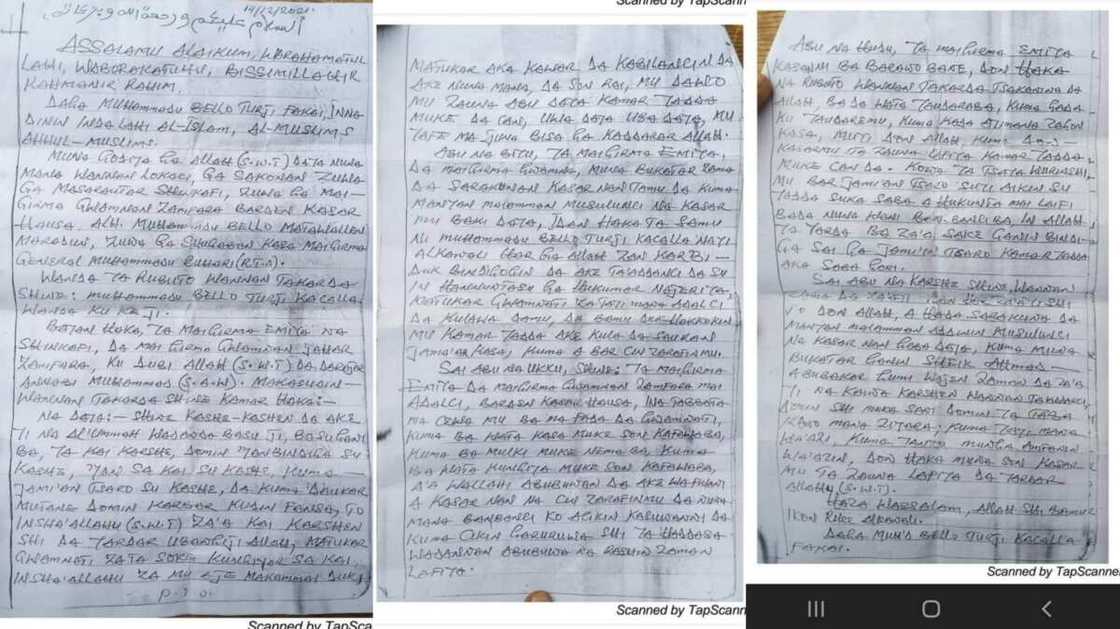 14/12/2021.
السلام عليكم ورحمة الله وبركاته
ASSALAMU ALAIKUM, WARAHAMATUL
LAHI, WABORAKATUHU, BISSIMILLAHIR
RAHMANIR RAHIM.
DAGA MUHAMMADU BELLO TURJI FAKAI, INNA
DININ INDALAHI AL-ISLAM, AL-MUSLIMS
AHHUL-MUSLIMS.
MUNA GODIYA GA ALLAH (S.W.T) DAYA NUNA
MANA WANNAN LOKACI, GA SAKONAN ZUWA
GA MASARAUTAR SHINKAFI, ZUWA GA MAI-
GIRMA GWAMNAN ZAMFARA BARDEN KASAR
HAUSA, ALH. MUHAMMADU BELLO MATAWALLEN
MARADUN, ZUWA GA SHUGABAN KASA MAIGIRMA
GENERAL MUHAMMADU BUHARI (RTA).
WANDA YA RUBUTO WANNAN TAKARDA
SHINE: MUHAMMADU BELLO TURJI KACALLA
WANDA KU KE JI.
BAYAN HAKA, YA MAIGIRMA EMIYA NA
SHINKAFI, DA MAI GIRMA GWAMNAN JAHAR
ZAMFARA, KU DUBI ALLAH (S.W.T) DA DARAJAR
ANNABI MUHAMMAD (S.A.W). MAKASUDIN
WANNAN TAKARDA SHINE KAMAR HAKA:-
NA DAYA:- SHINE KASHE-KASHEN DA AKE
YI NA AL'UMMAH WADANDA BASU JI, BASU GANI
BA, YA KAI KARSHE, DOMIN YANBINDIGA SU
KASHE, YAN SA KAI SU KASHE, KUMA
JAMI'AN TSARO SU KASHE, DA KUMA DAUKAR
MUTANE DOMIN KARBAR KUDIN FANSA, TO
INSHA'ALLAHU (S.W.T) ZA'A KAI KARSHEN
SHI DA YARDAR UBANGIJI ALLAH, MATUKAR
GWAMNATI ZATA SOKE KUNGIYOR SA KAI,
INSHA'ALLAHU ZA MU AJE MAKAMMAI DUK
P.T.O.
Scanned by TapSca
Scanned by TapScann
MATUKAR AKA KAWAR DA KABILANCIN DA
AKE NUNA MANA, DA SON RAI, MU DAWO
MU ZAUNA ABU DAYA KAMAR YADDA
MUKE DA CAN, UWA DAYA UBA DAYA, MU
YAFE MA JUNA BISA GA KADDARAR ALLAH.
ABU NA BIYU, YA MAIGIRMA EMIYA,
DA MAIGIRMA GWAMNA, MUNA BUKATAR ZAMA
DA SARAKUNAN KASAR NAN TAMU DA KUMA
MANYAN MALAMMAN MUSULUNCI NA KASAR
MU BAKI DAYA, IDAN HAKA TA SAMU
NI MUHAMMADU BELLO TURJI KACALLA NAYI
ALKAWALI HAR GA ALLAH ZAN KARBI
DUK BINDIGOGIN DA AKE TA'ADDANCI DA SU
IN HANNUNTASU GA HUKUMAR NAJERIYA,
MATUKAR GWAMNATI ZATAYI MANA ADALCI
DA KULAWA DAMU, DA BAMU DUK HAKKOKIN
MU KAMAR YADDA AKE KULA DA SAURAN
JAMA'AR KASA, KUMA A BAR CIN ZARAFINMU.
SAI ABU NA UKKU, SHINE: YA MAIGIRMA
EMIYA DA MAIGIRMA GWAMNAN ZAMFARA MAI
ADALCI, BARDEN KASAR HAUSA, INA TABBATA
MA CEWA MU BA MA FADA DA GWAMNATI,
KUMA BA WATA KASA MUKE SON KAFAWABA,
KUMA BA MULKI MUKE NEMA BA, KUMA
BA WATA KUNGIYA MUKE SON KAFAWABA,
A'A WALLAHI ABUBUWAN DA AKE WAFULANI
A KASAR NAN NA CIN ZARAFINMU DA NUNA
MANA BANBANCI KO ACIKIN KASUWANNI DA
KUMA CIKIN GARURUWA SHI YA HADDASA
WADANNAN ABUBUWA NA RASHIN ZAMAN
LAFIYA.
Scanned by TapScann
ABU NA HUDU, YA MAIGIRMA EMIYA
KASANI BA BARAWO BANE, DON HAKA
NA RUBUTO WANNAN TAKARDA TSAKANINA DA
ALLAH, BA DA WATA YAUDARABA, KUMA KADA
KU YAUDAREMU, KUMA KADA AYIMANA ZAGON
KASA, MUYI DON ALLAH, KUMA DON
KASARMU TA ZAUNA LAFIYA KAMAR YADDA
MUKE CAN DA. KOWA YA TSAYA MUHALLINSHI
MU BAR JAMI'AN TSARO SUYI AIKIN SU
YADDA SUKA SABA A HUKUNTA MAI LAIFI
BADA NUNA WANI BANBANCI BA, IN ALLAH
YA YARDA BA ZA'A SAKE GANIN BINDI-
GA SAI GA JAMI'IN TSARO KAMAR YADDA
AKA SABA GANI.
SAI ABU NA KARSHE SHINE, WANNAN
ZAMA DA ZA'AYI IDAN ZA'AYI SHI
DON ALLAH, A HADA SARAKUNA DA
MANYAN MALAMMAN ADDININ MUSULUNCI
NA KASAR NAN BAKI DAYA, KUMA MUNA
BUKATAR GANIN SHEIK AHMAD
ABUBAKAR GUMI WAJEN ZAMAN DA ZA'A
YI NA KAWO KARSHEN WANNAN TA'ADDANCI,
DOMIN SHI MUKA SANI DOMIN YA TABA
KAWO MANA ZIYARA, KUMA YAYI MANA
WA'AZI, KUMA YANZU MUNGA AMFANIN
WA'AZIN, DON HAKA MUNA SON KASAR
MU TA ZAUNA LAFIYA DA YARDAR
ALLAHU (S.W.T).
HAZA WASSALAM, ALLAH SHI BAMU
IKON RIKE ALKAWALI.
DAGA MUH'D BELLO TURJI KACALLA
FAKAI.
Scanned by TapScanner